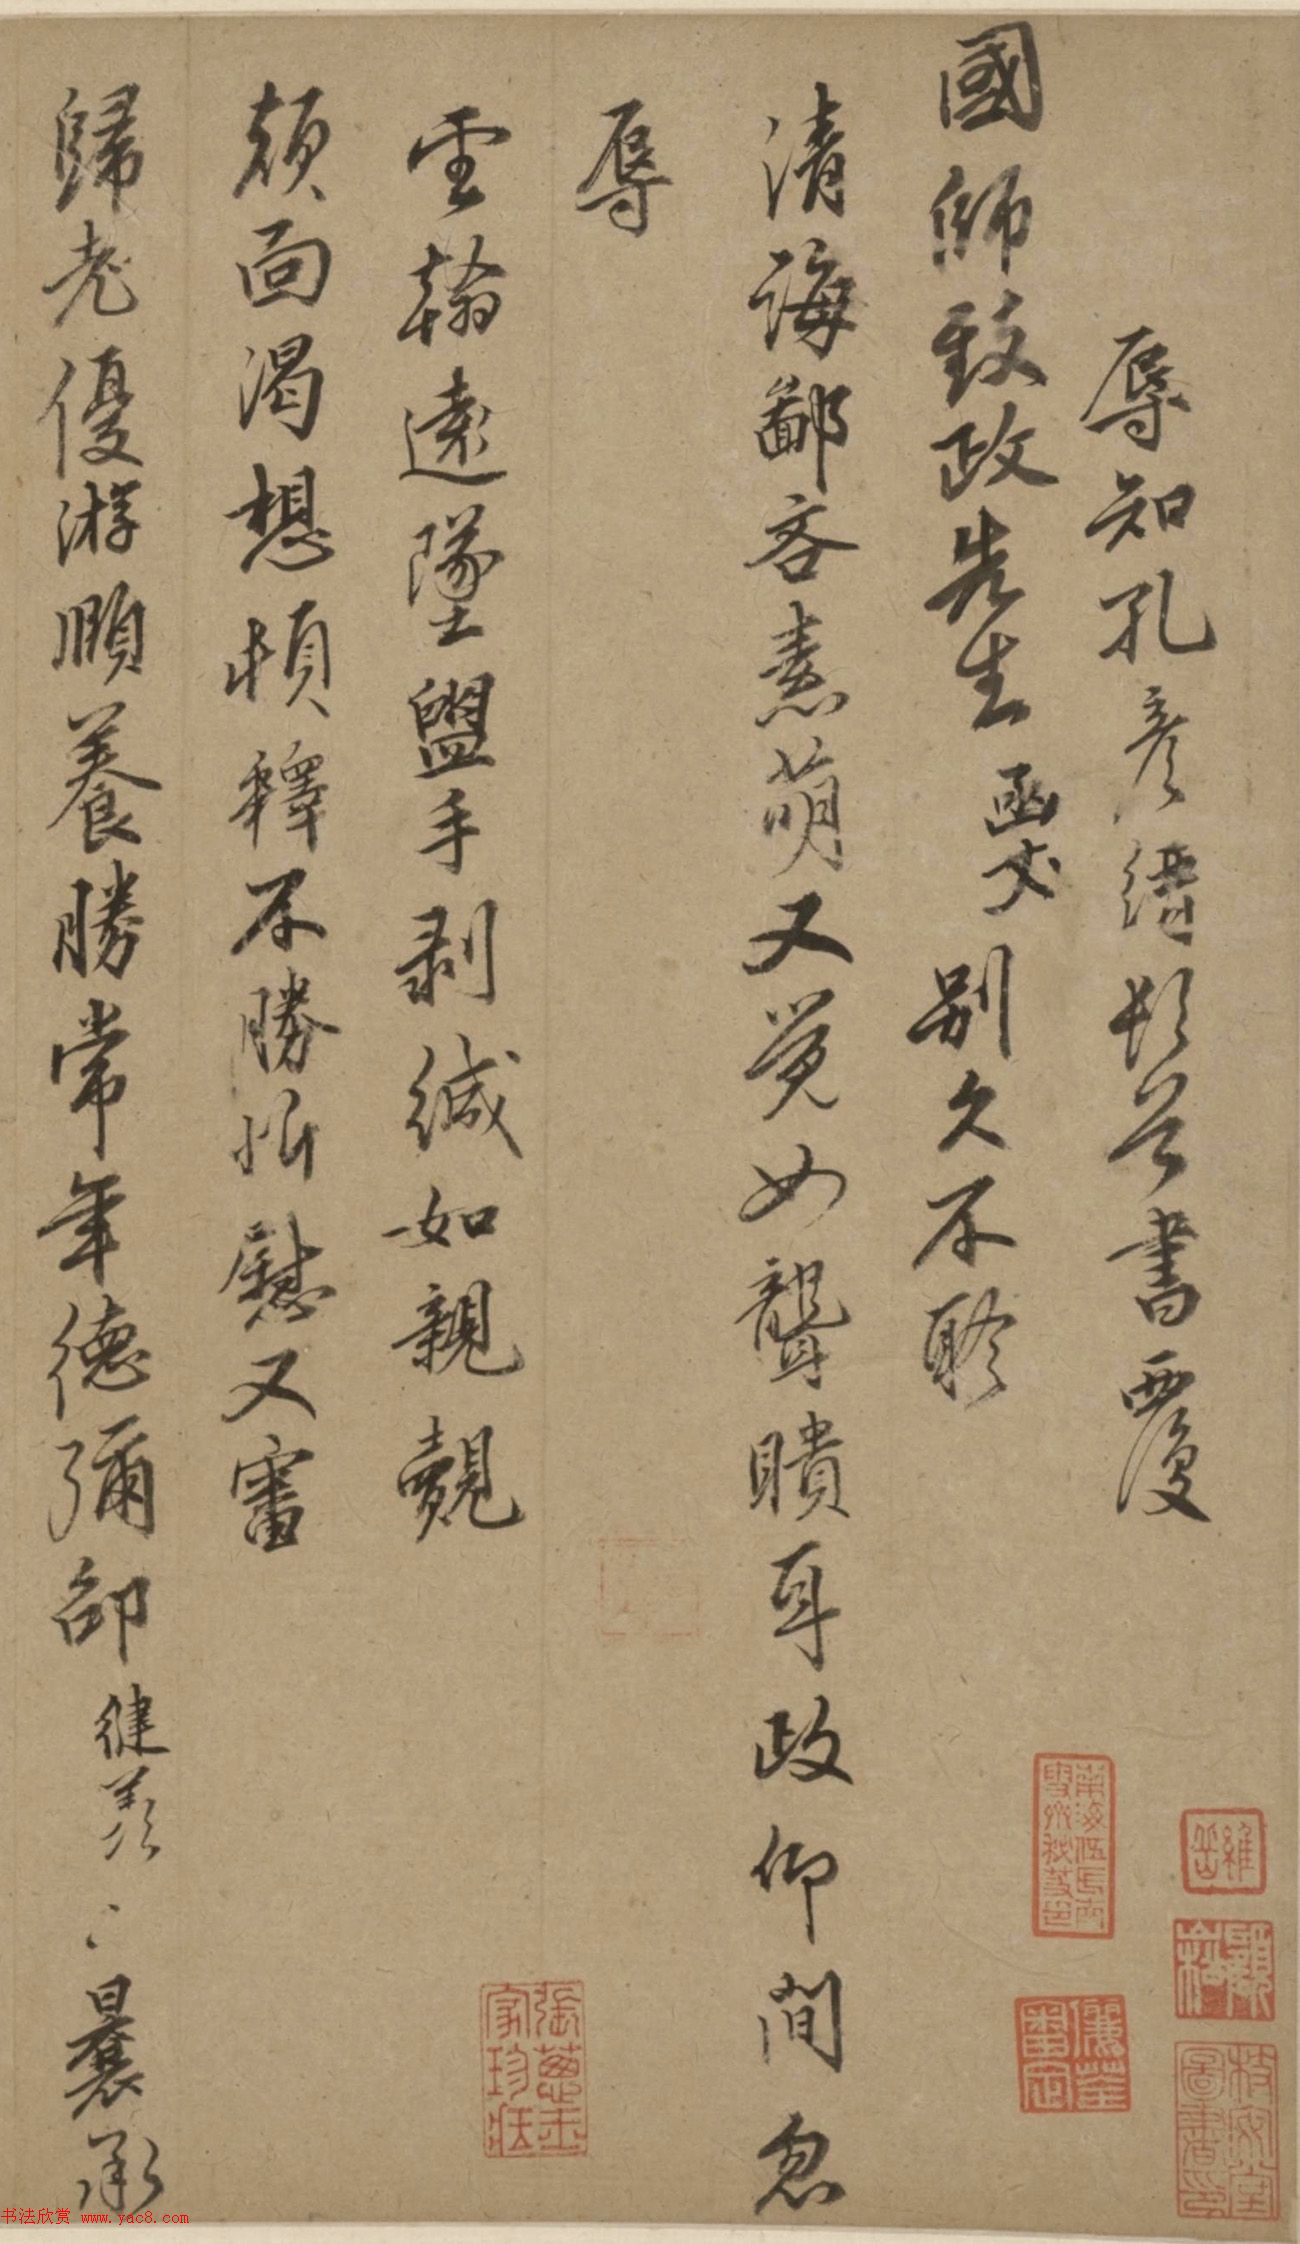 辱知孔彥縉頓首書覆
國師致政先生函丈別久不聆
清誨鄙吝素萌又覺如聾聵耳政仰間忽
辱
雲翰遠墜盥手剥緘如親覿
顏面渴想頓釋不勝忻慰又審
歸老優游順養勝常年德彌邵健羨健羨曩承
張蔥玉家珍藏
書法欣赏 www.yac8.com